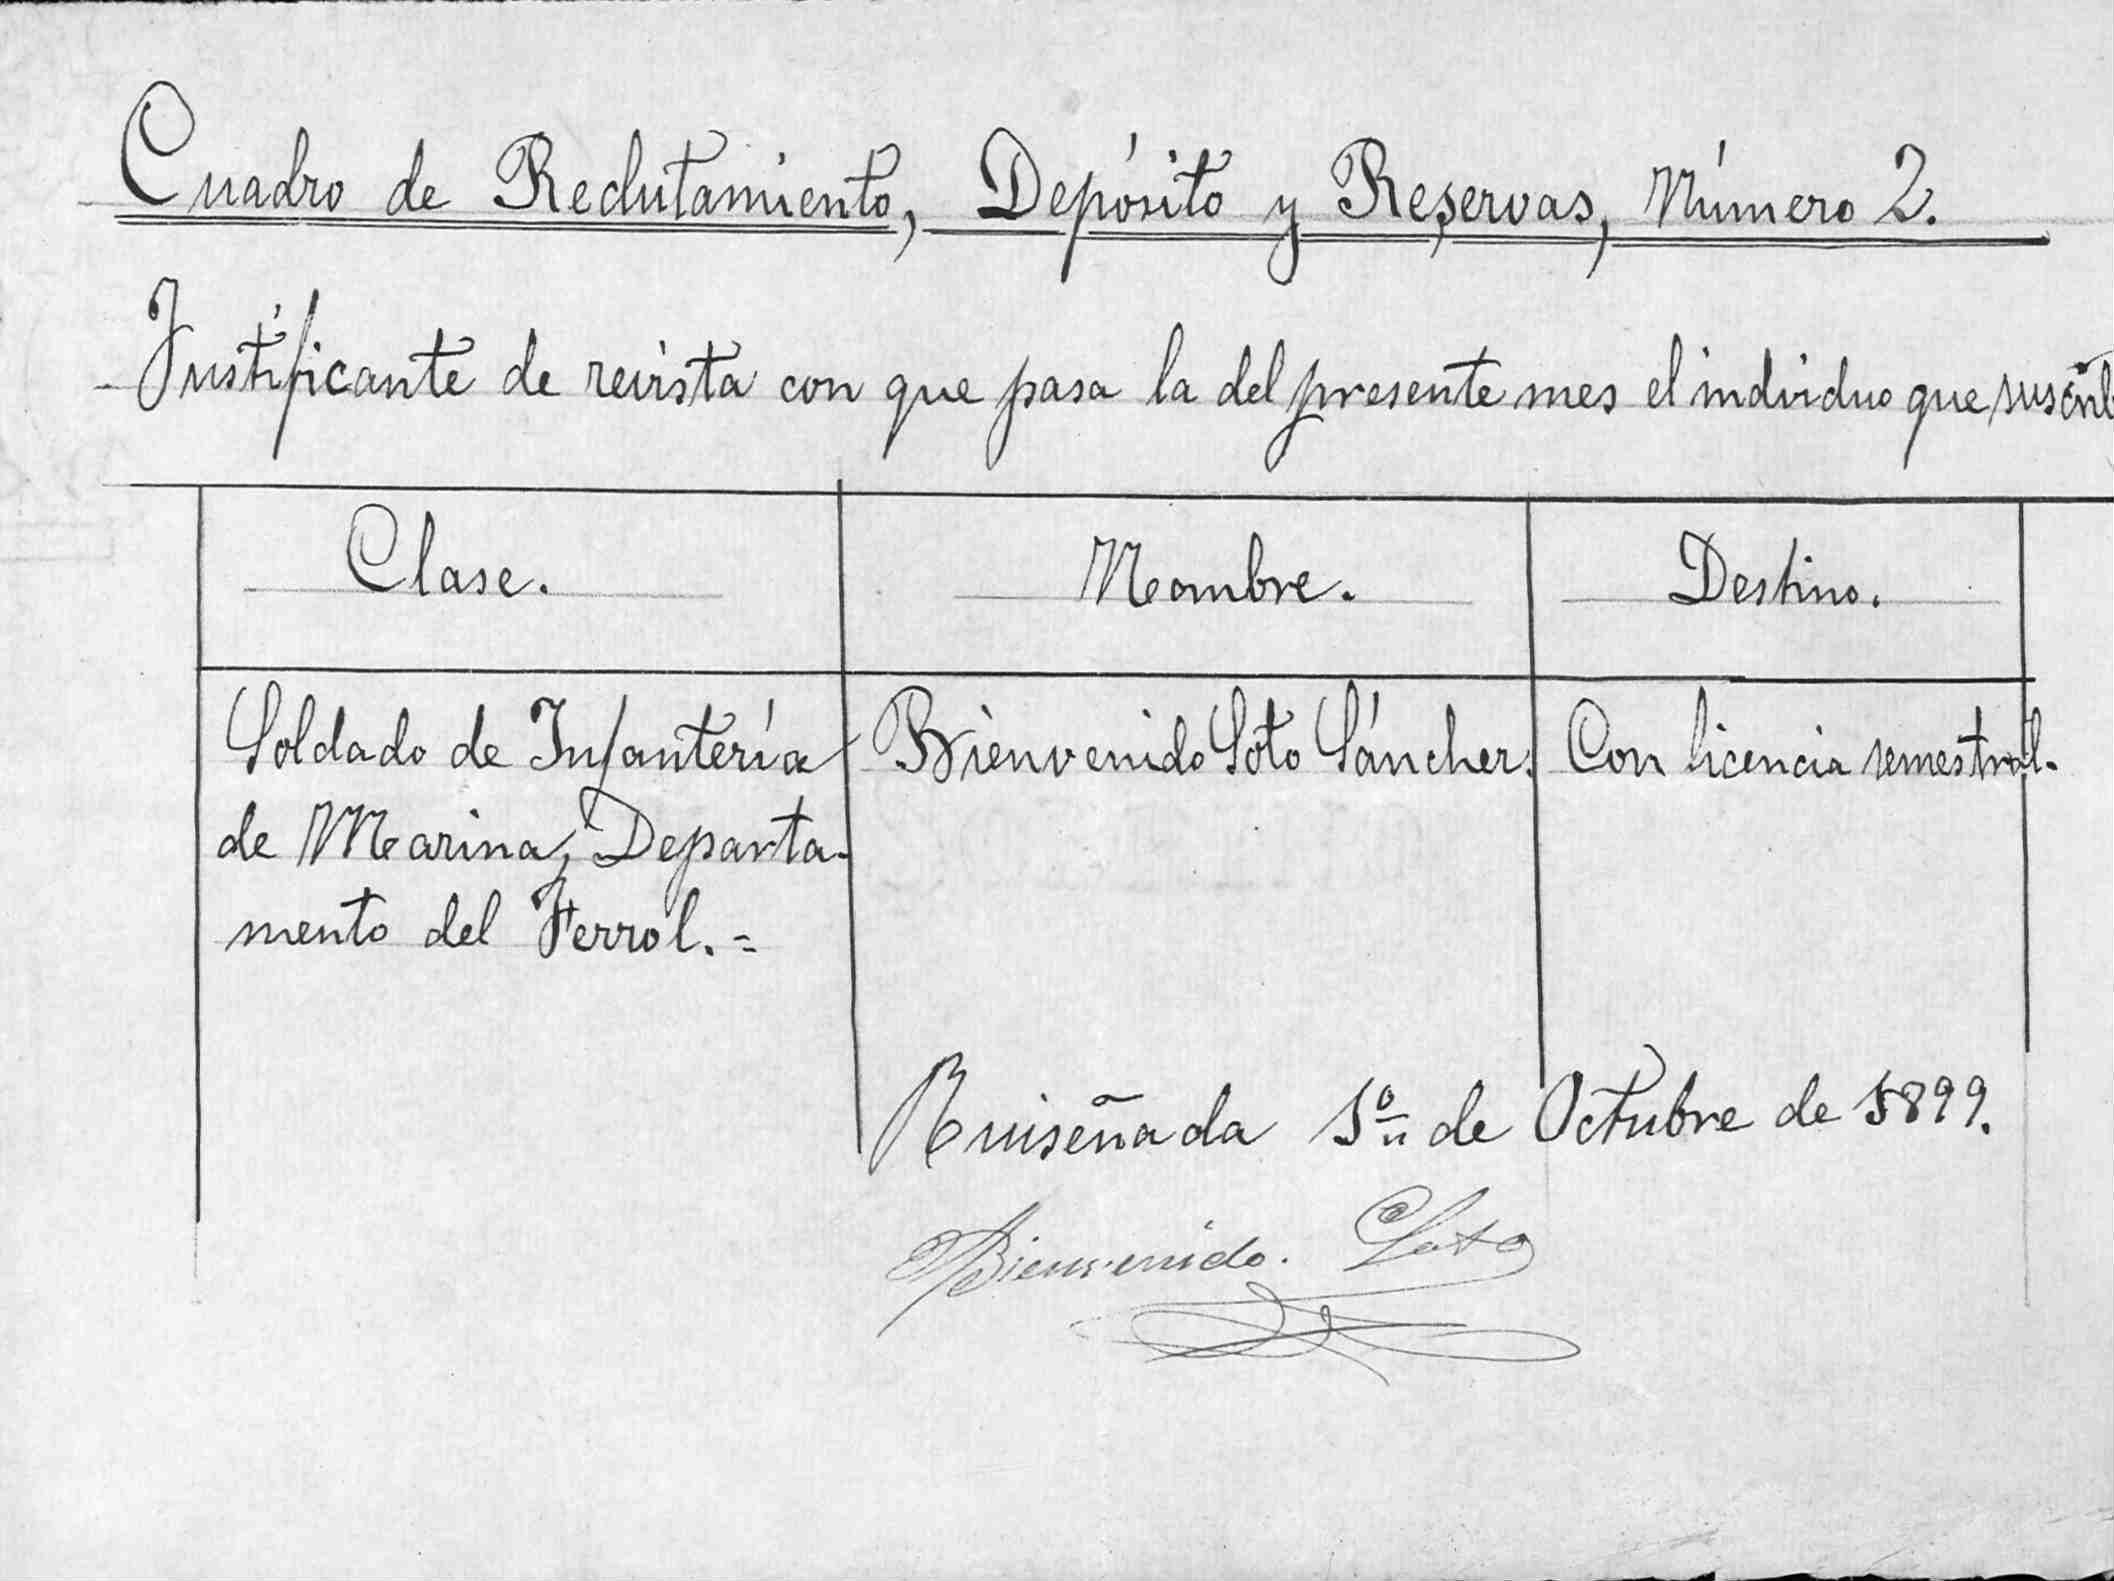 Cuadro de Reclutamiento, Depósito y Reservas, Número 2.
Justificante de revista con que pasa la del presente mes el individuo que suscrib
Clase. Nombre. Destino.
Soldado de Infantería Bienvenido Soto Sánchez. Con licencia semestral.
de Marina, Departa-
mento del Ferrol.=
Ruiseñada 1º de Octubre de 1899.
Bienvenido. Soto